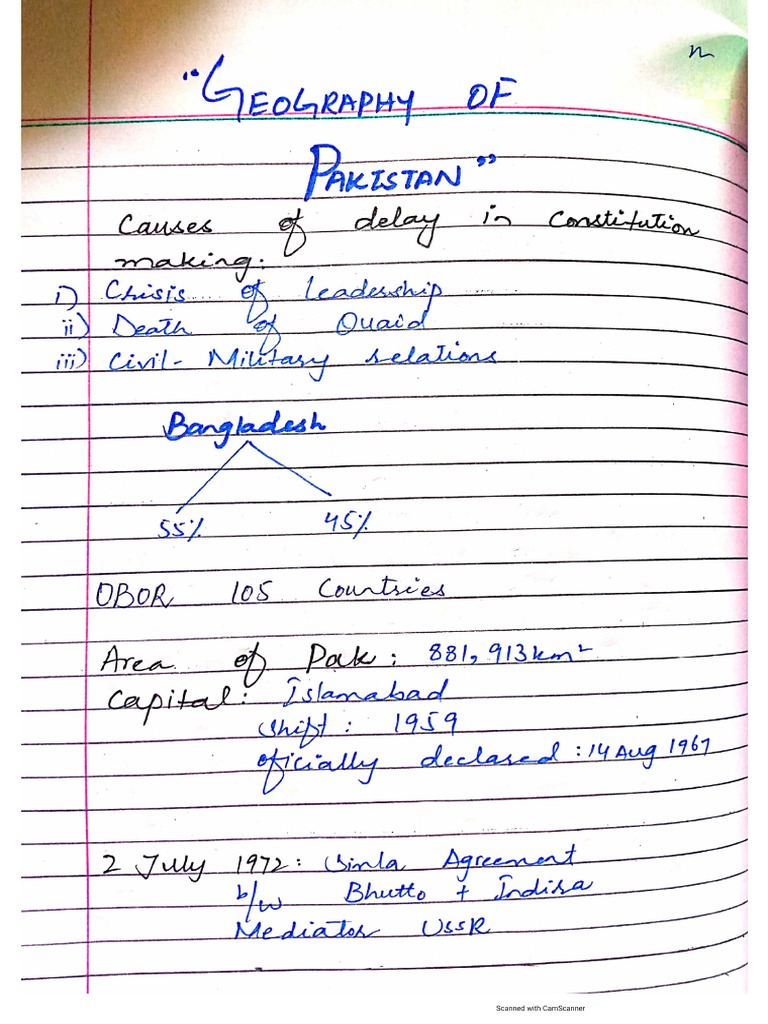 n
"GEOGRAPHY OF
PAKISTAN"
Causes of delay in Constitution
making:
i) Crisis of leadership
ii) Death of Quaid
iii) Civil-Military relations
Bangladesh
55% 45%
OBOR 105 Countries
Area of Pak: 881,913km²
Capital: Islamabad
Shift: 1959
Oficially declared: 14 Aug 1967
2 July 1972: Simla Agreement
b/w Bhutto + Indira
Mediator USSR
Scanned with CamScanner